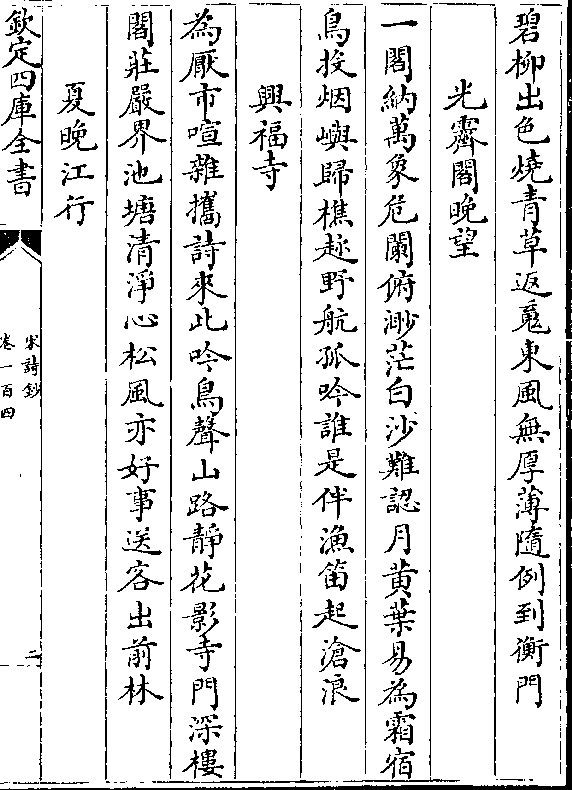 碧柳出色燒青草返䰟東風無厚薄隨例到衡門
光霽閣晚望
一閣納萬象危闌俯渺茫白沙難認月黄葉易為霜宿
鳥投烟嶼歸樵趂野航孤吟誰是伴漁笛起滄浪
興福寺
為厭市喧雜攜詩來此吟鳥聲山路靜花影寺門深樓
閣莊嚴界池塘清淨心松風亦好事送客出前林
夏晚江行
欽定四庫全書
宋詩鈔
卷一百四
二